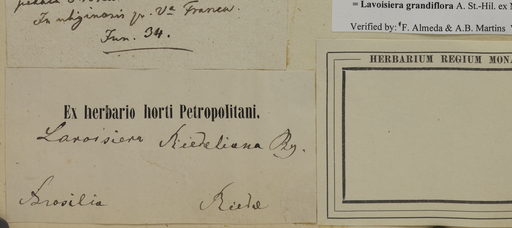 In uliginosis pr. Va Franca.
Jun. 34.
= Lavoisiera grandiflora A. St.-Hil. ex
Verified by: F. Almeda & A.B. Martins
HERBARIUM REGIUM MONA
Ex herbario horti Petropolitani.
Lavoisiera Riedeliana Bg.
Brasilia Riedel